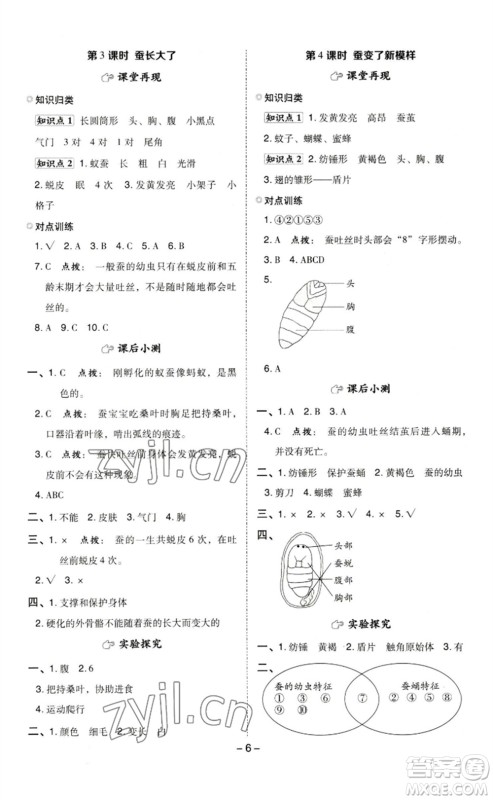 第 3 课时 蚕长大了
课堂再现
知识归类
知识点 1 长圆筒形 头、胸、腹 小黑点
气门 3 对 4 对 1 对 尾角
知识点 2 1. 蚁蚕 长 粗 白 光滑
2. 蜕皮 眠 4 次 3. 发黄发亮 小架子 小
格子
对点训练
1. √ 2. A 3. C 4. A 5. √ 6. √
7. C 点拨:一般蚕的幼虫只有蜕皮前和五
龄末期才会大量吐丝,不是随时随地都能吐
丝的。
8. A 9. C 10. C
课后小测
一、1. C 点拨:刚孵化的蚁蚕像蚂蚁,是黑
色的。
2. B 点拨:蚕宝宝吃桑叶时胸足抱桑叶,
口器沿着叶缘,啃出弧线的痕迹。
3. B 点拨:蚕快吐丝时会发黄发亮,蜕
皮前不会有这种现象。
4. ABC
二、1. 不能 2. 桑叶 3. 气门 4. 胸
三、1. × 点拨:蚕的一生共蜕皮 6 次,在吐
丝前共蜕皮 4 次。
2. √ 3. × 4. √ 5. √ 6. √
四、1. 支撑和保护身体
2. 硬化的外骨骼不能随着蚕的长大而变大的
实验探究
一、1. 腹 2. 6
3. 抱持桑叶,协助进食
4. 运动爬行
二、1. 颜色 细毛 2. 变长 白
第 4 课时 蚕变了新模样
课堂再现
知识归类
知识点 1 1. 发黄发亮 高昂 蚕茧
2. 蚊子、蝴蝶、蜜蜂
知识点 2 1. 纺锤形 黄褐色 头、胸、腹
3. 翅的雏形——盾片
对点训练
1. ④②①⑤③
2. C 点拨:蚕吐丝时头部会“8”字形摆动。
3. B 4. ABCD
5.
头
胸
腹
课后小测
一、1. A 2. B
3. C 点拨:蚕的幼虫吐丝结茧后进入蛹期,
并没有死亡。
二、1. 纺锤形 保护蚕蛹 2. 黄褐色 蚕的幼虫
3. 剪刀 4. 蝴蝶 蜜蜂
三、1. × 2. √ 3. × 4. √ 5. √
四、
头部
蚕蜕
腹部
胸部
实验探究
1. 纺锤 黄褐 2. 盾片 触角原始体 3. 有
4.
蚕的幼虫特征
① ③ ⑥
⑨ ⑩
⑦
蚕蛹特征
② ④ ⑤
⑧
– 6 –
zyjl.cn
zyjl.cn
答案圈
MXQE.COM